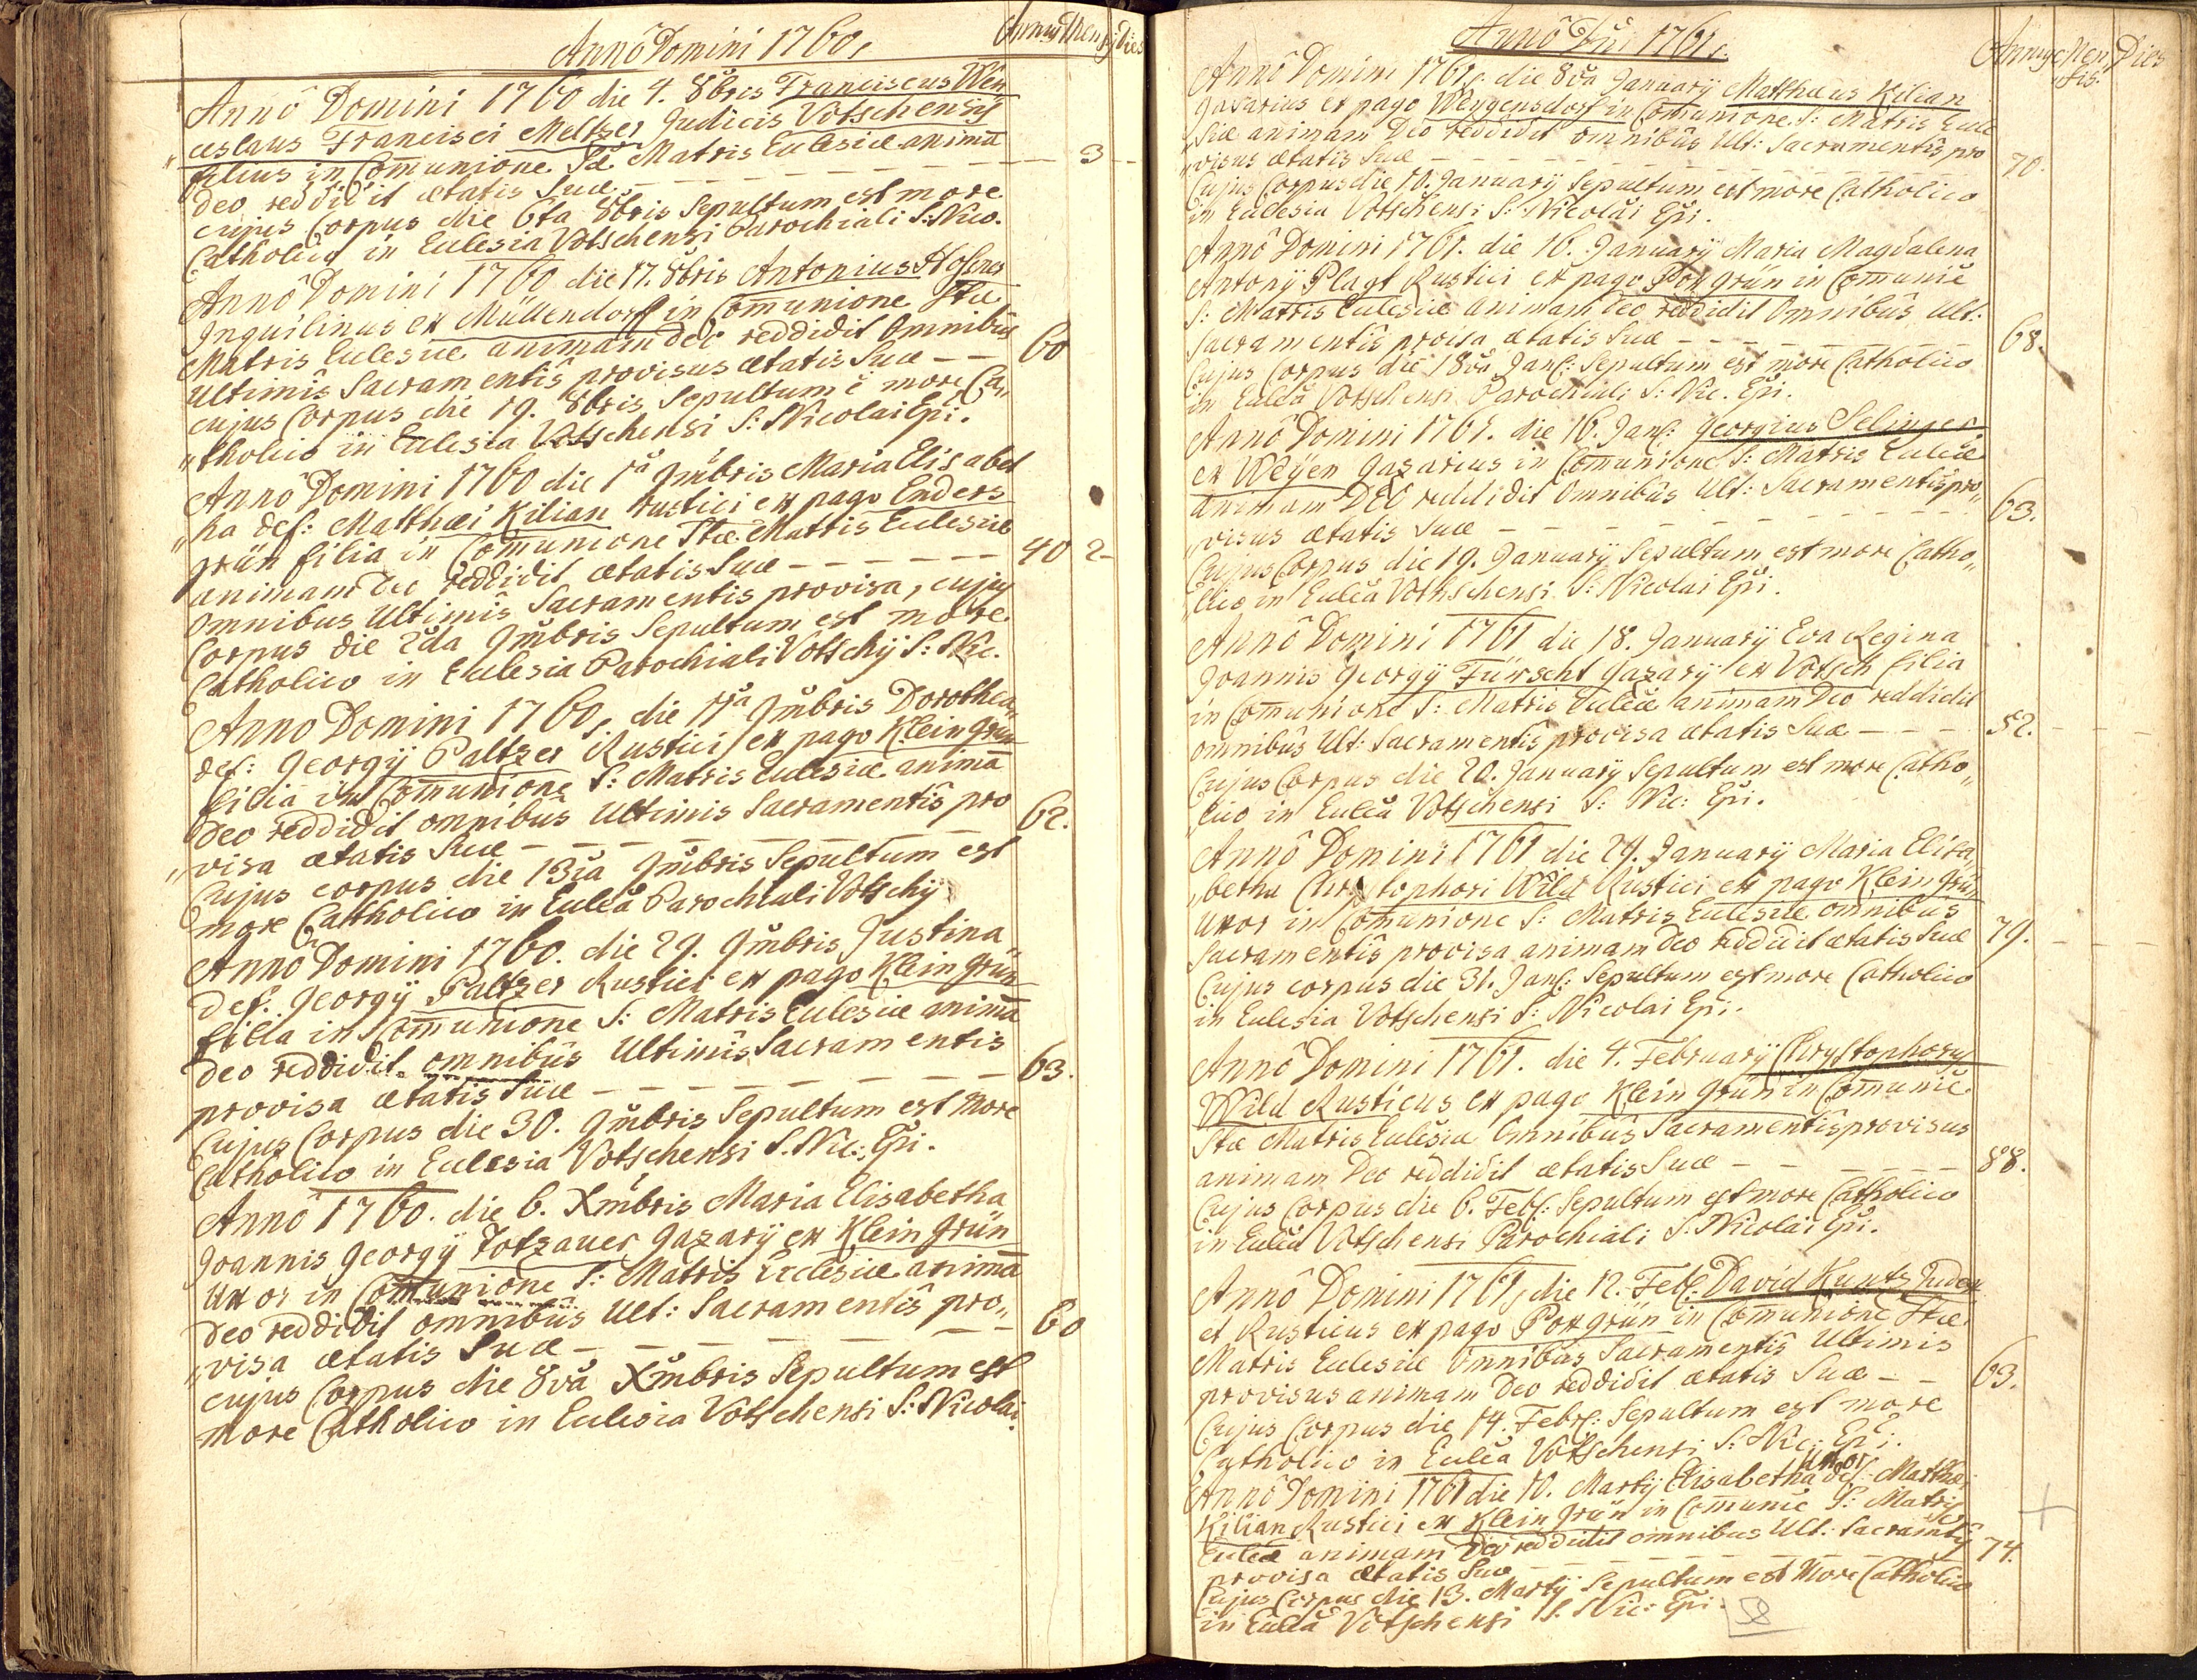 Annô Domini 1760.
Annus Mensis Dies
Annô Domini 1760 die 4. 8bris Franciscus Wen„
„ceslaus Francisci Meltzer Judicis Votschensis
filius in Com̄unione Stæ Matris Ecclesiæ animā
Deo reddidit ætatis Suæ – – – – – – – 3 – –
cujus Corpus die 6ta 8bris Sepultum est more
Catholico in Ecclesia Votschensi Parochiali S: Nico.
Annô Domini 1760 die 17. 8bris Antonius Hoferer
Inquilinus ex Müllendorf in Com̄unione Stæ
Matris Ecclesiæ animam deo reddidit Omnibûs
Ultimîs Sacramentîs provisus ætatis Suæ – – 60
cujus Corpus die 19. 8bris Sepultum ē more Ca„
„tholico in Ecclesia Votschensi S: Nicolai Epi.
Annô Domini 1760 die 1a 9mbris Maria Elisabet
„ha def: Matthæi Kilian rustici ex pago Enders
grün filia in Com̄unione Stæ Matris Ecclesiæ
animam Deo reddidit ætatis Suæ – – – – – – 40 2 –
Omnibus Ultimîs Sacramentis provisa, cujus
Corpus die 2da 9mbris Sepultum est more
Catholico in Ecclesia Parochiali Votschij S: Nic.
Anno Domini 1760, die 11a 9mbris Dorothea„
def: Georgij Paltzer Rustici ex pago Klein grün
filia in Com̄unione S: Matris Ecclesiæ animā
Deo reddidit omnibus Ultimis Sacramentîs pro
„visa ætatis Suæ – – – – – – – 62.
Cujus corpus die 13tia 9mbris Sepultum est
more Catholico in Eccleā Parochiali Votschij
Anno Domini 1760. die 29. 9mbris Justina„
Def: Georgij Paltzer Rustici ex pago Klein grün
filia in Com̄unione S: Matris Ecclesiæ animā
deo reddidit omnibûs Ultimîs Sacramentis
provisa ætatis Suæ – – – – – – – 63.
Cujus Corpus die 30. 9mbris Sepultum est More
Catholico in Ecclesia Votschensi S. Nic: Epi.
Annô 1760. die 6. Xmbris Maria Elisabetha
Joannis Georgij Totzauer gazarij ex Klein grün
Uxor in Com̄unione S: Matris Ecclesiæ animā
Deo reddidit omnibûs Ult: Sacramentîs pro„
„visa ætatis Suæ – – – – – – – 60
cujus Corpus die 8vâ Xmbris Sepultum est
more Catholico in Ecclesia Votschensi S: Nicolai.
Annô Dni 1761.
Annus Men„sis. Dies
Annô Domini 1761. die 8va Januarij Matthæus Kilian
gazarius ex pago Weygensdorf in Com̄unione S: Matris Eccle
„siæ animam Deo reddidit omnibûs Ult: Sacramentîs pro
„visus ætatis Suæ – – – – – – – 70.
Cujus Corpus die 10. Januarij Sepultum est more Catholico
in Ecclesia Votschensi S: Nicolai Epi.
Annô Domini 1761. die 16. Januarij Maria Magdalena
Antonij Plagt Rustici ex pago Poxgrün in Com̄unië
S: Matris Ecclesiæ animam Deo reddidit Omnibûs Ult:
Sacramentîs provisa ætatis Suæ – – – – – – 68.
Cujus Corpus die 18va Janr: Sepultum est more Catholico
in Eccleâ Votschensi Parochiali S: Nic. Epi.
Annô Domini 1761. die 16. Janr: Georgius Selinger
ex Weijen gazarius in Com̄unione S: Matris Eccleæ
animam Deo reddidit Omnibûs Ult: Sacramentîs pro„
„visus ætatis Suæ – – – – – – – 63.
Cujus Corpus die 19. Januarij Sepultum est more Catho„
„lico in Eccleâ Vothschensi S: Nicolai Epi.
Annô Domini 1761 die 18. Januarij Eva Regina
Joannis Georgij Fürscht gazarij ex Votsch filia
in Com̄unione S: Matris Eccleæ animam Deo reddidit
omnibûs Ult: Sacramentîs provisa ætatis Suæ – – – 52.
Cujus Corpus die 20. Januarij Sepultum est more Catho„
„lico in Eccleâ Votschensi S: Nic: Epi.
Annô Domini 1761 die 29. Januarij Maria Elisa„
„betha Christophori Wild Rustici ex pago Klein grün
Uxor in Com̄unione S: Matris Ecclesiæ omnibûs
Sacramentîs provisa animam Deo reddidit ætatis Suæ 79.
Cujus corpus die 31. Janr: Sepultum est more Catholico
in Ecclesia Votschensi S: Nicolai Epi.
Annô Domini 1761. die 4. Februarij Chrystophorus
Wild Rusticus ex pago Klein grün in Com̄unië
Stæ Matris Ecclesiæ Omnibûs Sacramentîs provisus
animam Deo reddidit ætatis Suæ – – – – – – 88.
Cujus Corpus die 6. Febr: Sepultum est more Catholico
in Eccleâ Votschensi Parochiali S. Nicolai Epi.
Annô Domini 1761, die 12. Febr: David Kuntz Judex
et Rusticus ex pago Poxgrün in Com̄unione Stæ
Matris Ecclesiæ Omnibûs Sacramentîs Ultimis
provisus animam Deo reddidit ætatis Suæ – – 63.
Cujus Corpus die 14. Febr: Sepultum est more
Catholico in Eccleâ Votschensi S: Nic: Epi.
Annô Domini 1761 die 10. Martij Elisabetha uxor def: Matthæi
Kilian Rustici ex Klein grün in Com̄unië S: Matris
Eccleæ animam Deo reddidit omnibus Ult: Sacramtîs
provisa ætatis Suæ – – – – – – – 74.
Cujus Corpus die 13. Martij Sepultum est More Catholico
in Eccleâ Votschensi S. Nic: Epi.
58